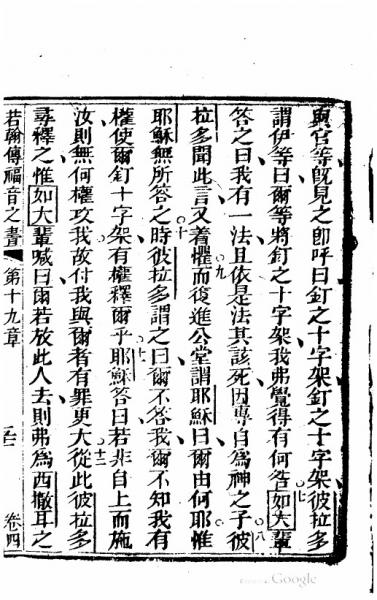 與官等旣見之卽呼曰釘之十字架釘之十字架彼拉多
謂伊等曰爾等將釘之十字架我弗覺得有何咎如大輩
答之曰我有一法且依是法其該死因專自爲神之子彼
拉多聞此言又着懼而復進公堂謂耶穌曰爾由何耶惟
耶穌無所答之時彼拉多謂之曰爾不答我爾不知我有
權使爾釘十字架有權釋爾乎耶穌答曰若非自上而施
汝則無何權攻我故付我與爾者有罪更大從此彼拉多
尋釋之惟如大輩喊曰爾若放此人去則弗爲西撒耳之
若翰傳福音之書 第十九章 卷四
七
八
九
十
十一
十二
Google